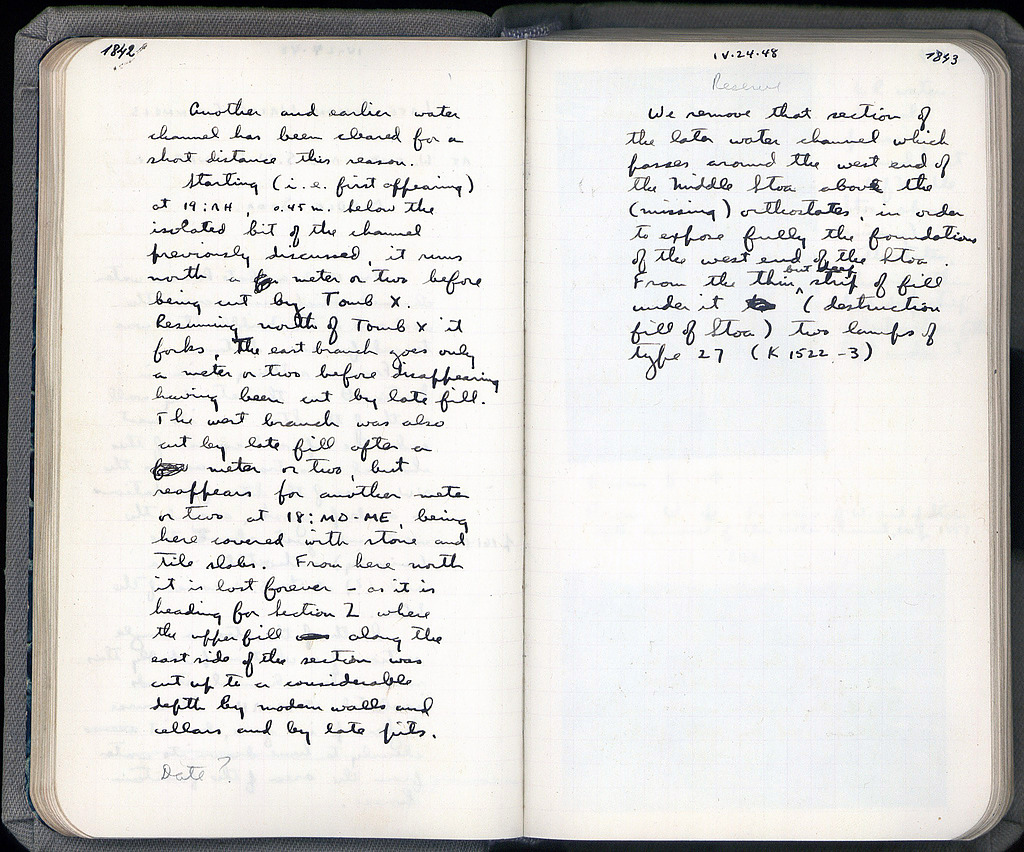 1842
Another and earlier water
channel has been cleared for a
short distance this season.
Starting (i.e. first appearing)
at 19:ΛH, 0.45 m. below the
isolated bit of the channel
previously discussed, it runs
north a meter or two before
being cut by Tomb X.
Resuming north of Tomb X it
forks, the east branch goes only
a meter or two before disappearing
having been cut by late fill.
The west branch was also
cut by late fill after a
meter or two, but
reappears for another meter
or two at 18:MD-ME, being
here covered with stone and
tile slabs. From here north
it is lost forever - as it is
heading for Section Z where
the upper fill along the
east side of the section was
cut up to a considerable
depth by modern walls and
cellars and by late pits.
Date?
IV.24.48
1843
Reserve
We remove that section of
the later water channel which
passes around the west end of
the Middle Stoa above the
(missing) orthostates, in order
to expose fully the foundations
of the west end of the Stoa.
From the thin, but deep strip of fill
under it (destruction
fill of Stoa) two lamps of
type 27 (K 1522-3)